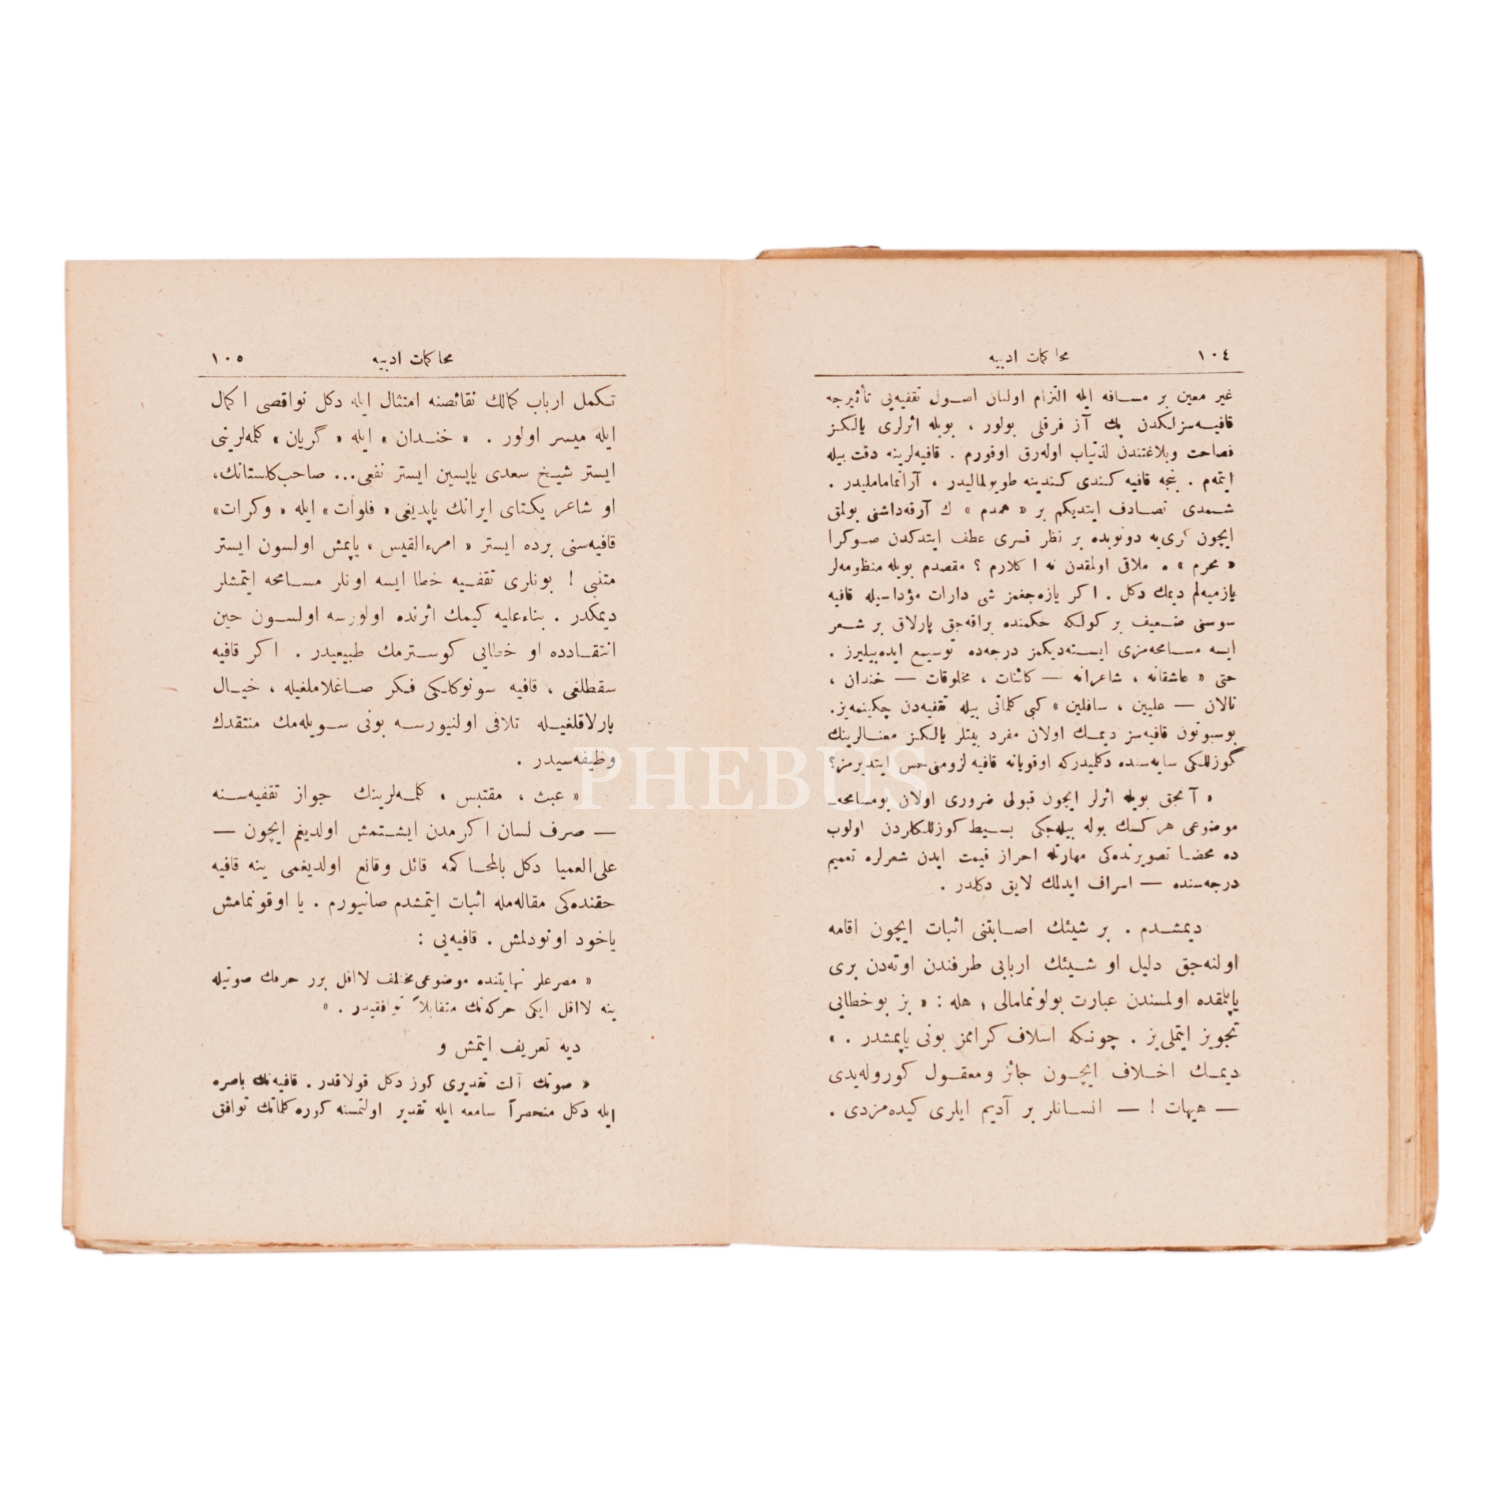 ١٠٤ محاكمات ادبيه
غير معين بر مسافه ايله التزام اولنان اصول تقفيه‌يى تأثيرجه
قافيه‌سزلكدن پك آز فرقلى بولور ، بويله اثرلرى يالكز
فصاحت وبلاغتندن لذتياب اوله‌رق اوقورم . قافيه‌لرينه دقت بيله
ايتمم . بنجه قافيه كندى كندينه طويولماليدر ، آرانماملیدر .
شمدى تصادف ايتديكم بر « همدم » ك آرقه‌داشنى بولمق
ايچون كرى‌يه دونوبده بر نظر قسرى عطف ايتدكدن صوكرا
« محرم » ه ملاقى اولمقدن نه اكلارم ؟ مقصدم بويله منظومه‌لر
يازميه‌لم ديمك دكل . اكر يازه‌جغمز شى دارات مؤداسيله قافيه
سوسنى ضعيف بر كولكه حكمنده براقه‌جق پارلاق بر شعر
ايسه مسامحه‌مزى ايسته‌ديكمز درجه‌ده توسيع ايده‌بيليرز .
حتى « عاشقانه ، شاعرانه — كائنات ، مخلوقات — خندان ،
نالان — عليين ، سافلين » كبى كلماتى بيله تقفيه‌دن چكينمه‌يز.
بوسبوتون قافيه‌سز ديمك اولان مفرد بيتلر يالكز معنالرينك
كوزللكى سايه‌سنده دكلميدركه اوقويانه قافيه لزومنى حس ايتديرمز؟
« آنجق بويله اثرلر ايچون قبولى ضرورى اولان بومسامحه‌
موضوعى هركسك بوله بيله‌جكى بسيط كوزللكلردن اولوب
ده محضا تصويرنده‌كى مهارتله احراز قيمت ايدن شعرلره تعميم
درجه‌سنده — اسراف ايدلمك لايق دكلدر .
ديمشدم . بر شيئك اصابتنى اثبات ايچون اقامه
اولنه‌جق دليل او شيئك اربابى طرفندن اوته‌دن برى
ياپيلمقده اولمسندن عبارت بولونمامالى ؛ هله : « بز بوخطايى
تجويز ايتملى‌يز . چونكه اسلاف كراممز بونى ياپمشدر . »
ديمك اخلاف ايچون جائز ومعقول كوروله‌يدى
— هيهات ! — انسانلر بر آديم ايلرى كيده‌مزدى .
محاكمات ادبيه ١٠٥
تكمل ارباب كمالك نقائصنه امتثال ايله دكل نواقصى اكمال
ايله ميسر اولور . « خندان » ايله « گريان » كلمه‌لرينى
ايستر شيخ سعدى ياپسين ايستر نفعى... صاحب‌كلستانك،
او شاعر يكتاى ايرانك ياپديغى « فلوات » ايله « وكرات»
قافيه‌سنى برده ايستر « امرءالقيس » ياپمش اولسون ايستر
متنبى ! بونلرى تقفيه خطا ايسه اونلر مسامحه ايتمشلر
ديمكدر . بناءعليه كيمك اثرنده اولورسه اولسون حين
انتقادده او خطايى كوسترمك طبيعيدر . اكر قافيه
سقطلغى ، قافيه سونوكلكى فكر صاغلاملغيله ، خيال
پارلاقلغيله تلافى اولنيورسه بونى سويله‌مك منتقدك
وظيفه‌سيدر .
« عبث ، مقتبس » كلمه‌لرينك جواز تقفيه‌سنه
— صرف لسان اكرمدن ايشتمش اولديغم ايچون —
على‌العميا دكل بالمحاكمه قائل وقانع اولديغمى ينه قافيه
حقنده‌كى مقاله‌مله اثبات ايتمشدم صانيورم . يا اوقونمامش
ياخود اونودلمش . قافيه‌يى :
« مصرعلر نهايتنده موضوعى مختلف لااقل برر حرفك صوتيله
ينه لااقل ايكى حركه‌نك متقابلاً توافقيدر . »
ديه تعريف ايتمش و
« صوتك آلت تقديرى كوز دكل قولاقدر . قافيه‌نك باصره
ايله دكل منحصراً سامعه ايله تقدير اولنمسنه كوره كلماتك توافق
PHEBUS